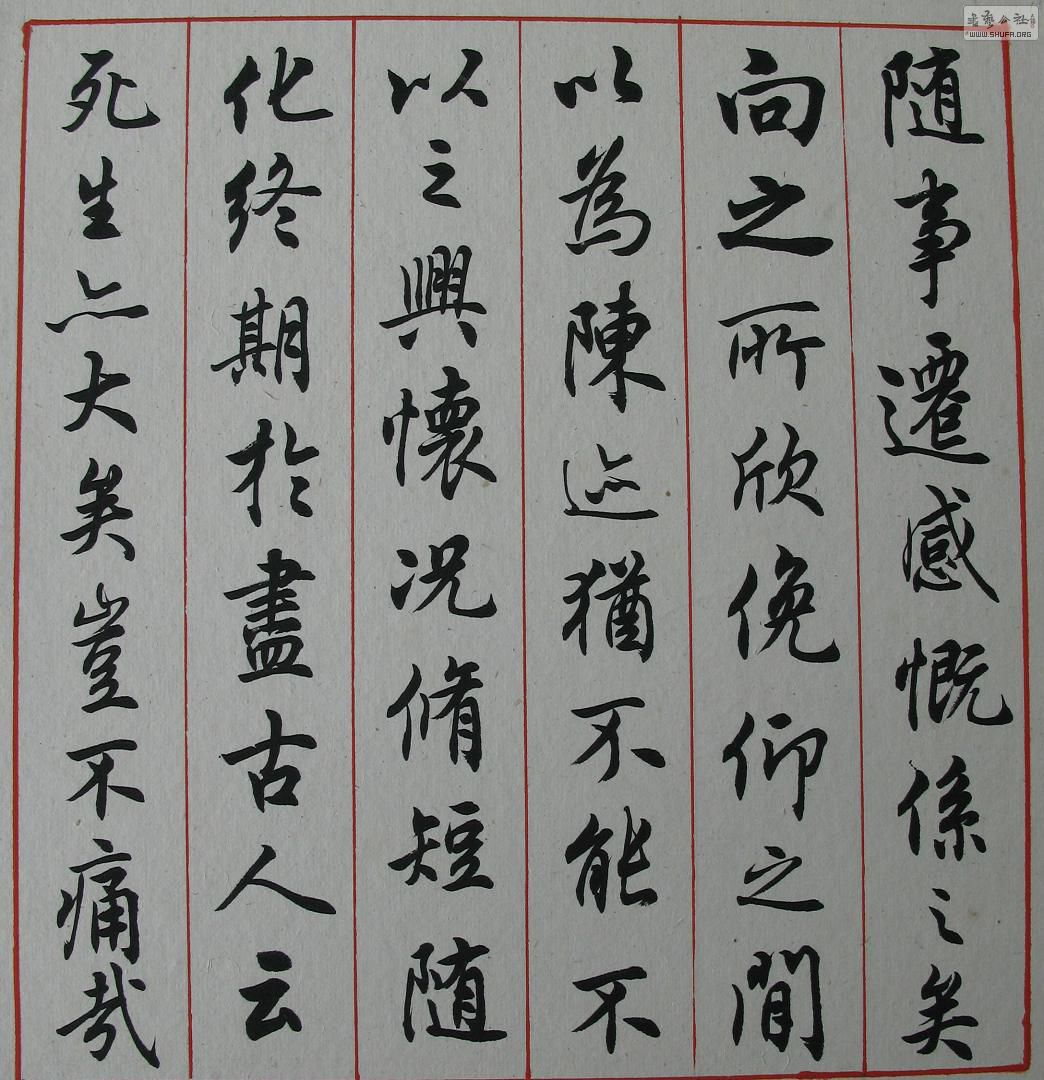 随事遷感慨係之矣
向之所欣俛仰之間
以為陳迹猶不能不
以之興懷况脩短随
化終期於盡古人云
死生亦大矣豈不痛哉
WWW.SHUFA.ORG